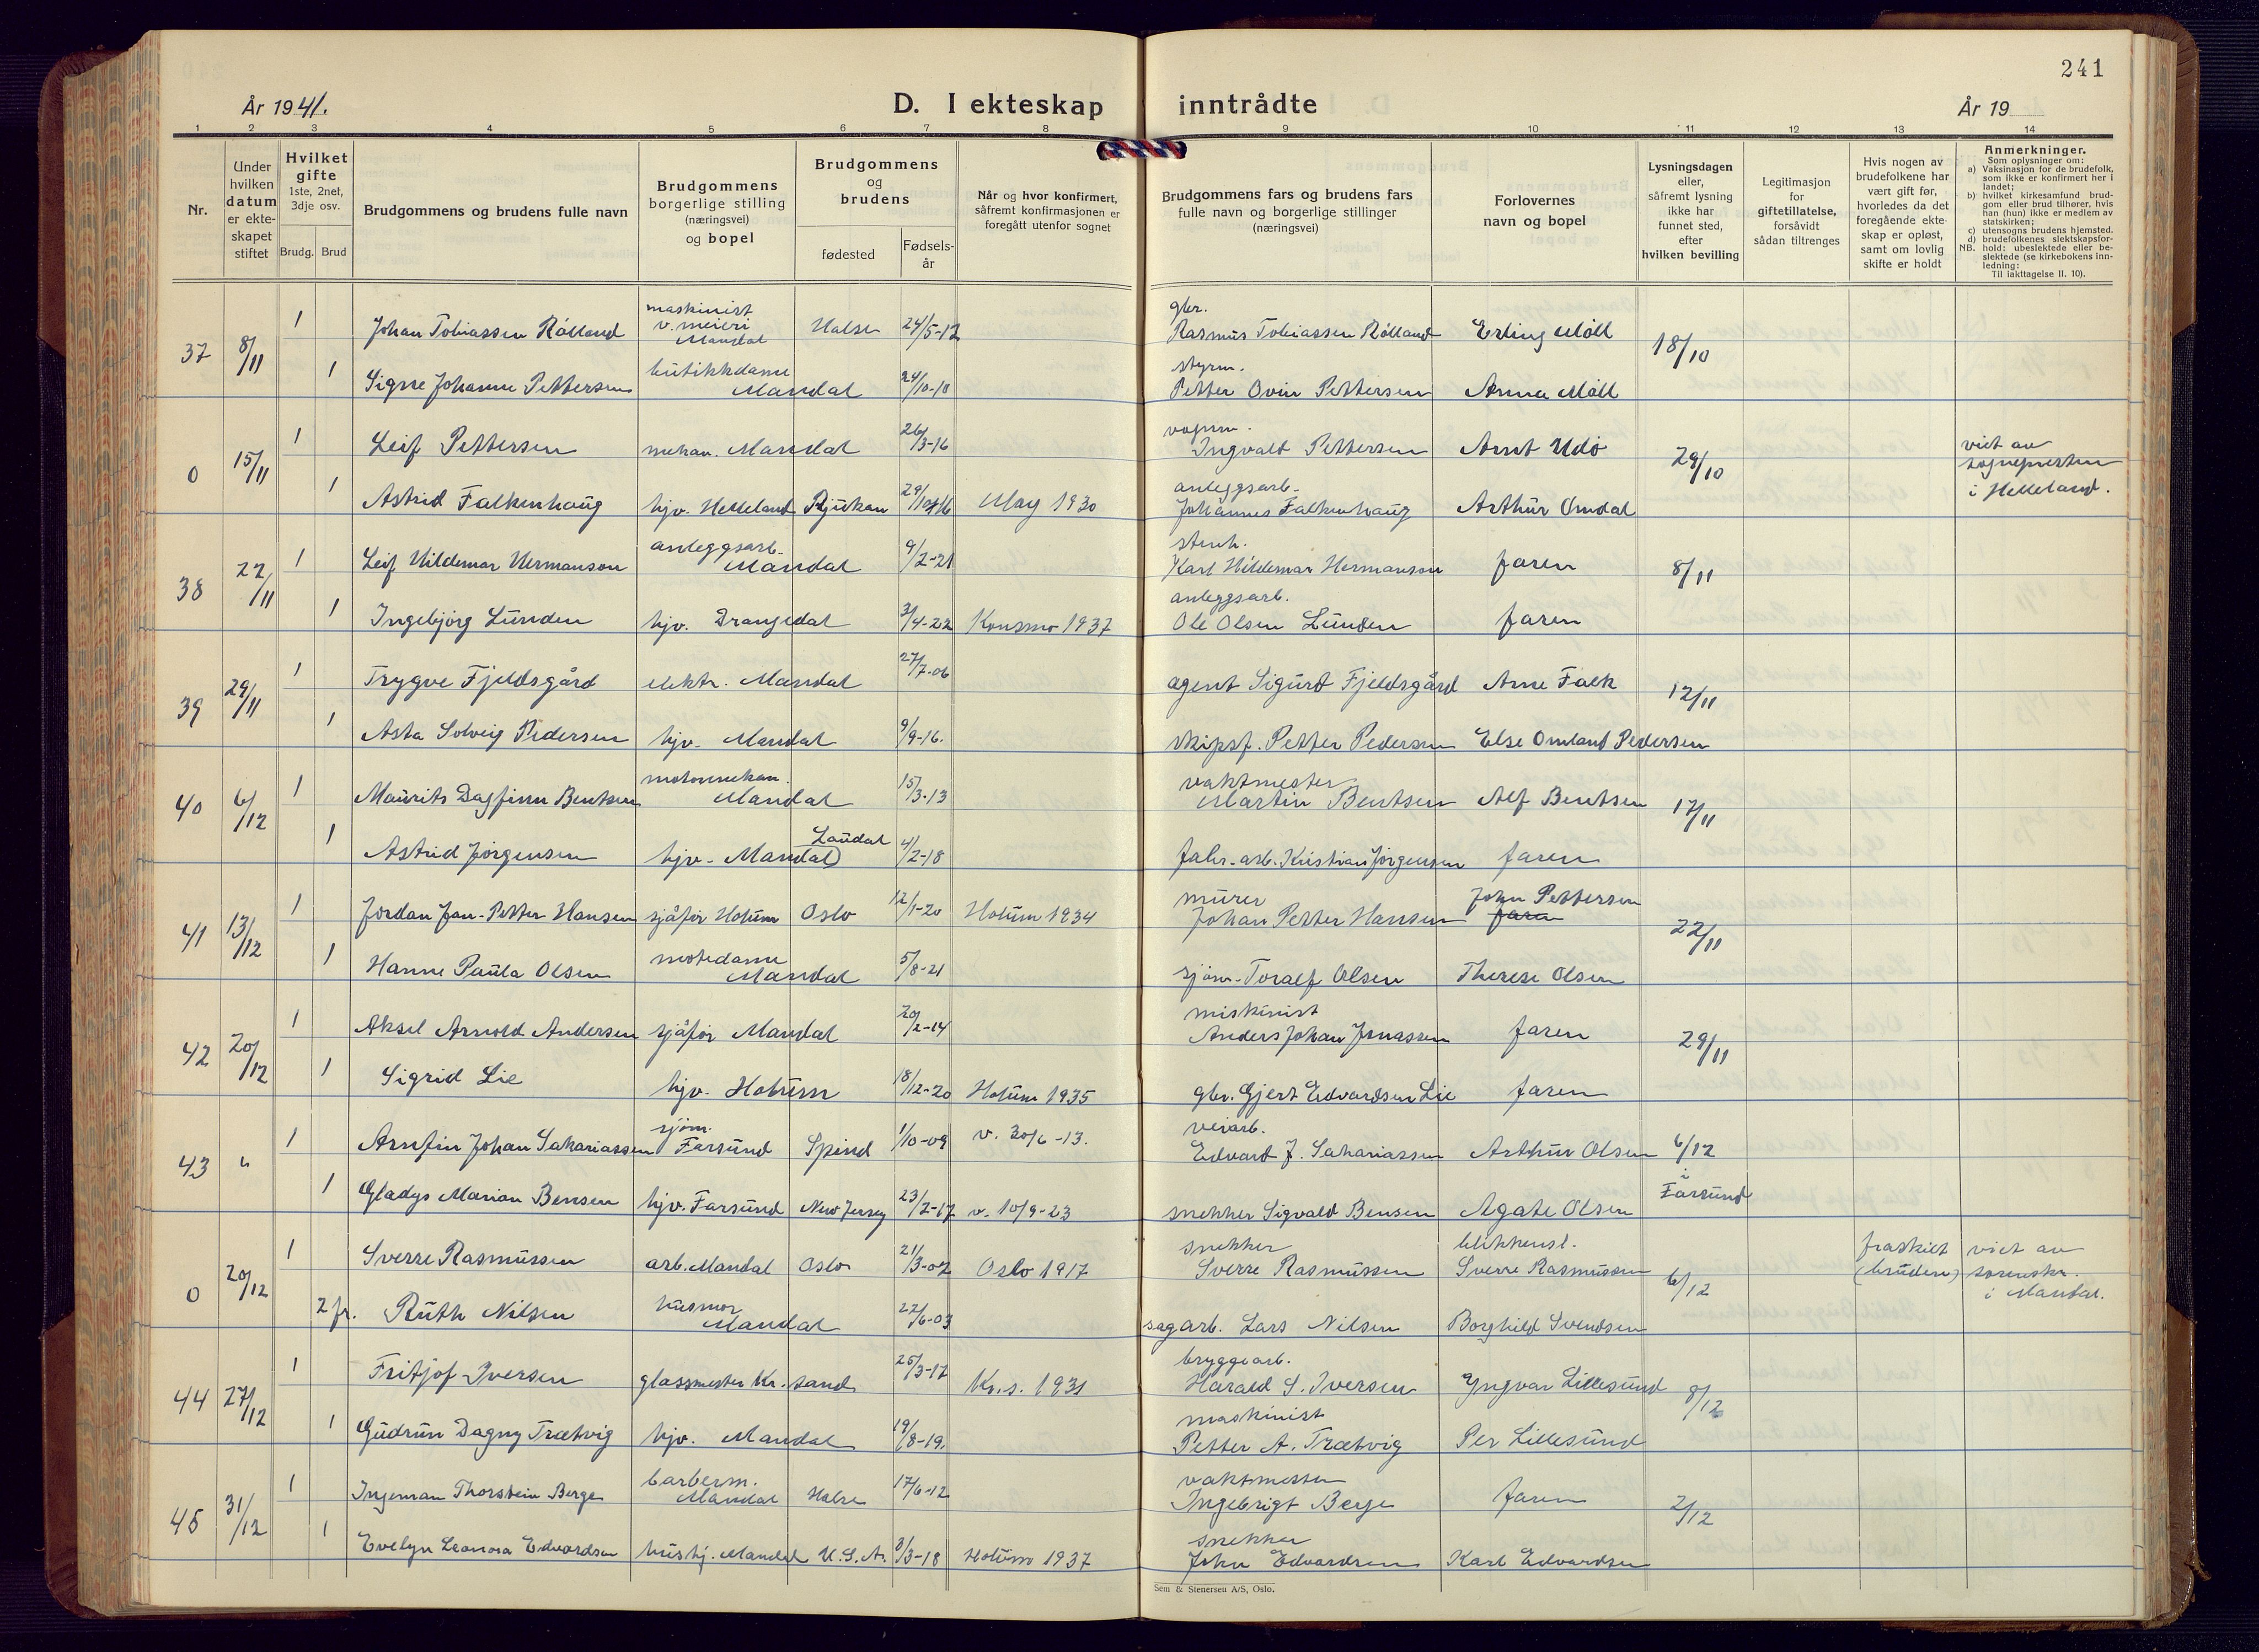 241
År 1941.
D. I ekteskap inntrådte
År 19
1 2 3 4 5 6 7 8 9 10 11 12 13 14
Nr.
Under
hvilken
datum
er ekte-
skapet
stiftet
Hvilket
gifte
1ste, 2net,
3dje osv.
Brudg. Brud
Brudgommens og brudens fulle navn
Brudgommens
borgerlige stilling
(næringsvei)
og bopel
Brudgommens
og
brudens
fødested
Fødsels-
år
Når og hvor konfirmert,
såfremt konfirmasjonen er
foregått utenfor sognet
Brudgommens fars og brudens fars
fulle navn og borgerlige stillinger
(næringsvei)
Forlovernes
navn og bopel
Lysningsdagen
eller,
såfremt lysning
ikke har
funnet sted,
efter
hvilken bevilling
Legitimasjon
for
giftetillatelse,
forsåvidt
sådan tiltrenges
Hvis nogen av
brudefolkene har
vært gift før,
hvorledes da det
foregående ekte-
skap er opløst,
samt om lovlig
skifte er holdt
Anmerkninger.
Som oplysninger om:
a) Vaksinasjon for de brudefolk,
som ikke er konfirmert her i
landet;
b) hvilket kirkesamfund brud-
gom eller brud tilhører, hvis
han (hun) ikke er medlem av
statskirken;
c) utensogns brudens hjemsted.
d) brudefolkenes slektskapsfor-
NB. hold: ubeslektede eller be-
slektede (se kirkebokens inn-
ledning:
Til iakttagelse II. 10).
37 8/11 1 Johan Tobiassen Rölland maskinist v. meieri Mandal Halse 24/5-12 gbr. Rasmus Tobiassen Rölland Erling Möll 18/10
1 Signe Johanne Pettersen butikkdame Mandal 24/10-10 styrm. Petter Ovin Pettersen Anna Möll
0 15/11 1 Leif Pettersen mekan. Mandal 26/3-16 Ingvald Pettersen Arnt Udö 29/10 viet av sognepresten i Helleland.
1 Astrid Falkenhaug hjv. Helleland Rjukan 29/ -16 May 1930 anleggsarb. Johannes Falkenhaug Arthur Omdal
38 22/11 1 Leif Hildemar Hermanson anleggsarb. Mandal 9/2-21 Karl Hildemar Hermanson faren 8/11
1 Ingebjörg Lunden hjv. Drangedal 3/4-22 Konsmo 1937 anleggsarb. Ole Olsen Lunden faren
39 29/11 1 Trygve Fjeldsgård elektr. Mandal 27/7-06 agent Sigurd Fjeldsgård Arne Falk 12/11
1 Asta Solveig Pedersen hjv. Mandal 9/9-16. skipsf. Petter Pedersen Else Omland Pedersen
40 6/12 1 Maurits Dagfinn Bentsen motormekan. Mandal 15/3-13 vaktmester Martin Bentsen Alf Bentsen 17/11
1 Astrid Jörgensen hjv. Mandal Laudal 4/2-18 fabr.-arb. Kristian Jörgensen faren
41 13/12 1 Jordan Jan-Petter Hansen sjåför Holum Oslo 12/1-20 Holum 1934 murer Johan Petter Hansen John Pettersen faren 22/11
1 Hanne Paula Olsen motedame Mandal 5/8-21 sjöm. Toralf Olsen Therese Olsen
42 20/12 1 Aksel Arnold Andersen sjåför Mandal 20/2-14 miskinist Anders Johan Jonassen faren 29/11
1 Sigrid Lie hjv. Holum 18/12-20 Holum 1935 gbr. Gjert Edvardsen Lie faren
43 " 1 Arnfin Johan Sakariassen sjöm. Farsund Spind 1/10-09 v. 30/6-13. veiarb. Edvard J. Sakariassen Arthur Olsen 6/12 i Farsund
1 Gladys Marion Bensen hjv. Farsund New Jersey 23/2-17 v. 10/9-23 snekker Sigvald Bensen Agate Olsen
0 20/12 1 Sverre Rasmussen arb. Mandal Oslo 21/3-02 Oslo 1917 snekker Sverre Rasmussen blikkensl. Sverre Rasmussen 6/12 fraskilt (bruden) viet av sorenskr. i Mandal.
2 fr. Ruth Nilsen husmor Mandal 22/6-03 sagarb. Lars Nilsen Borghild Svendsen
44 27/12 1 Fritjof Iversen glassmester Kr.sand 25/3-17 Kr.s. 1931 bryggearb. Harald S. Iversen Yngvar Lillesund 8/12
1 Gudrun Dagny Trætvig hjv. Mandal 19/8-19. maskinist Petter A. Trætvig Per Lillesund
45 31/12 1 Ingeman Thorstein Berge barberm. Mandal Halse 17/6-12 vaktmester Ingebrigt Berge faren 2/12
1 Evelyn Leonora Edvardsen hushj. Mandal U.S.A. 8/3-18 Holum 1937 snekker John Edvardsen Karl Edvardsen
Sem & Stenersen A/S, Oslo.